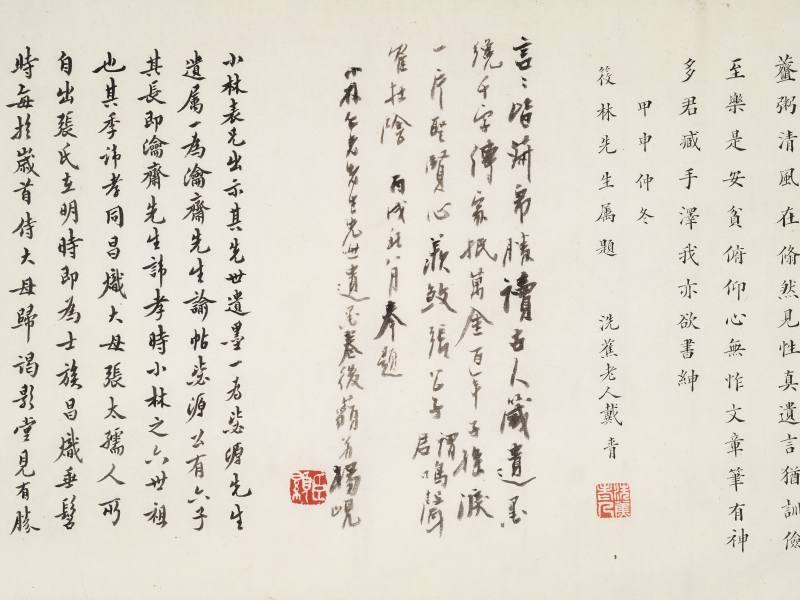 虀粥清風在翛然見性真遺言猶訓儉
至樂是安貧俯仰心無怍文章筆有神
多君臧手澤我亦欲書紳
甲申仲冬
筱林先生屬題 洗蕉老人戴青
洗蕉老人
言〻皆菽帛勝讀古人箴遺墨
纔千字傳家抵萬金百年子孫淚
一片聖賢心羨煞張公子謂君鳴聲
寉在陰 丙戌秋八月奉題
小林仁兄先生先世遺墨卷後藐翁楊峴
小林表兄出示其先世遺墨一為毖源先生
遺屬一為瀹齋先生諭帖毖源公有六子
其長即瀹齋先生諱孝時小林之六世祖
也其季諱孝同昌熾大母張太孺人所
自出張氏在明時即為士族昌熾垂髫
時每於歲首侍大母歸謁影堂見有勝